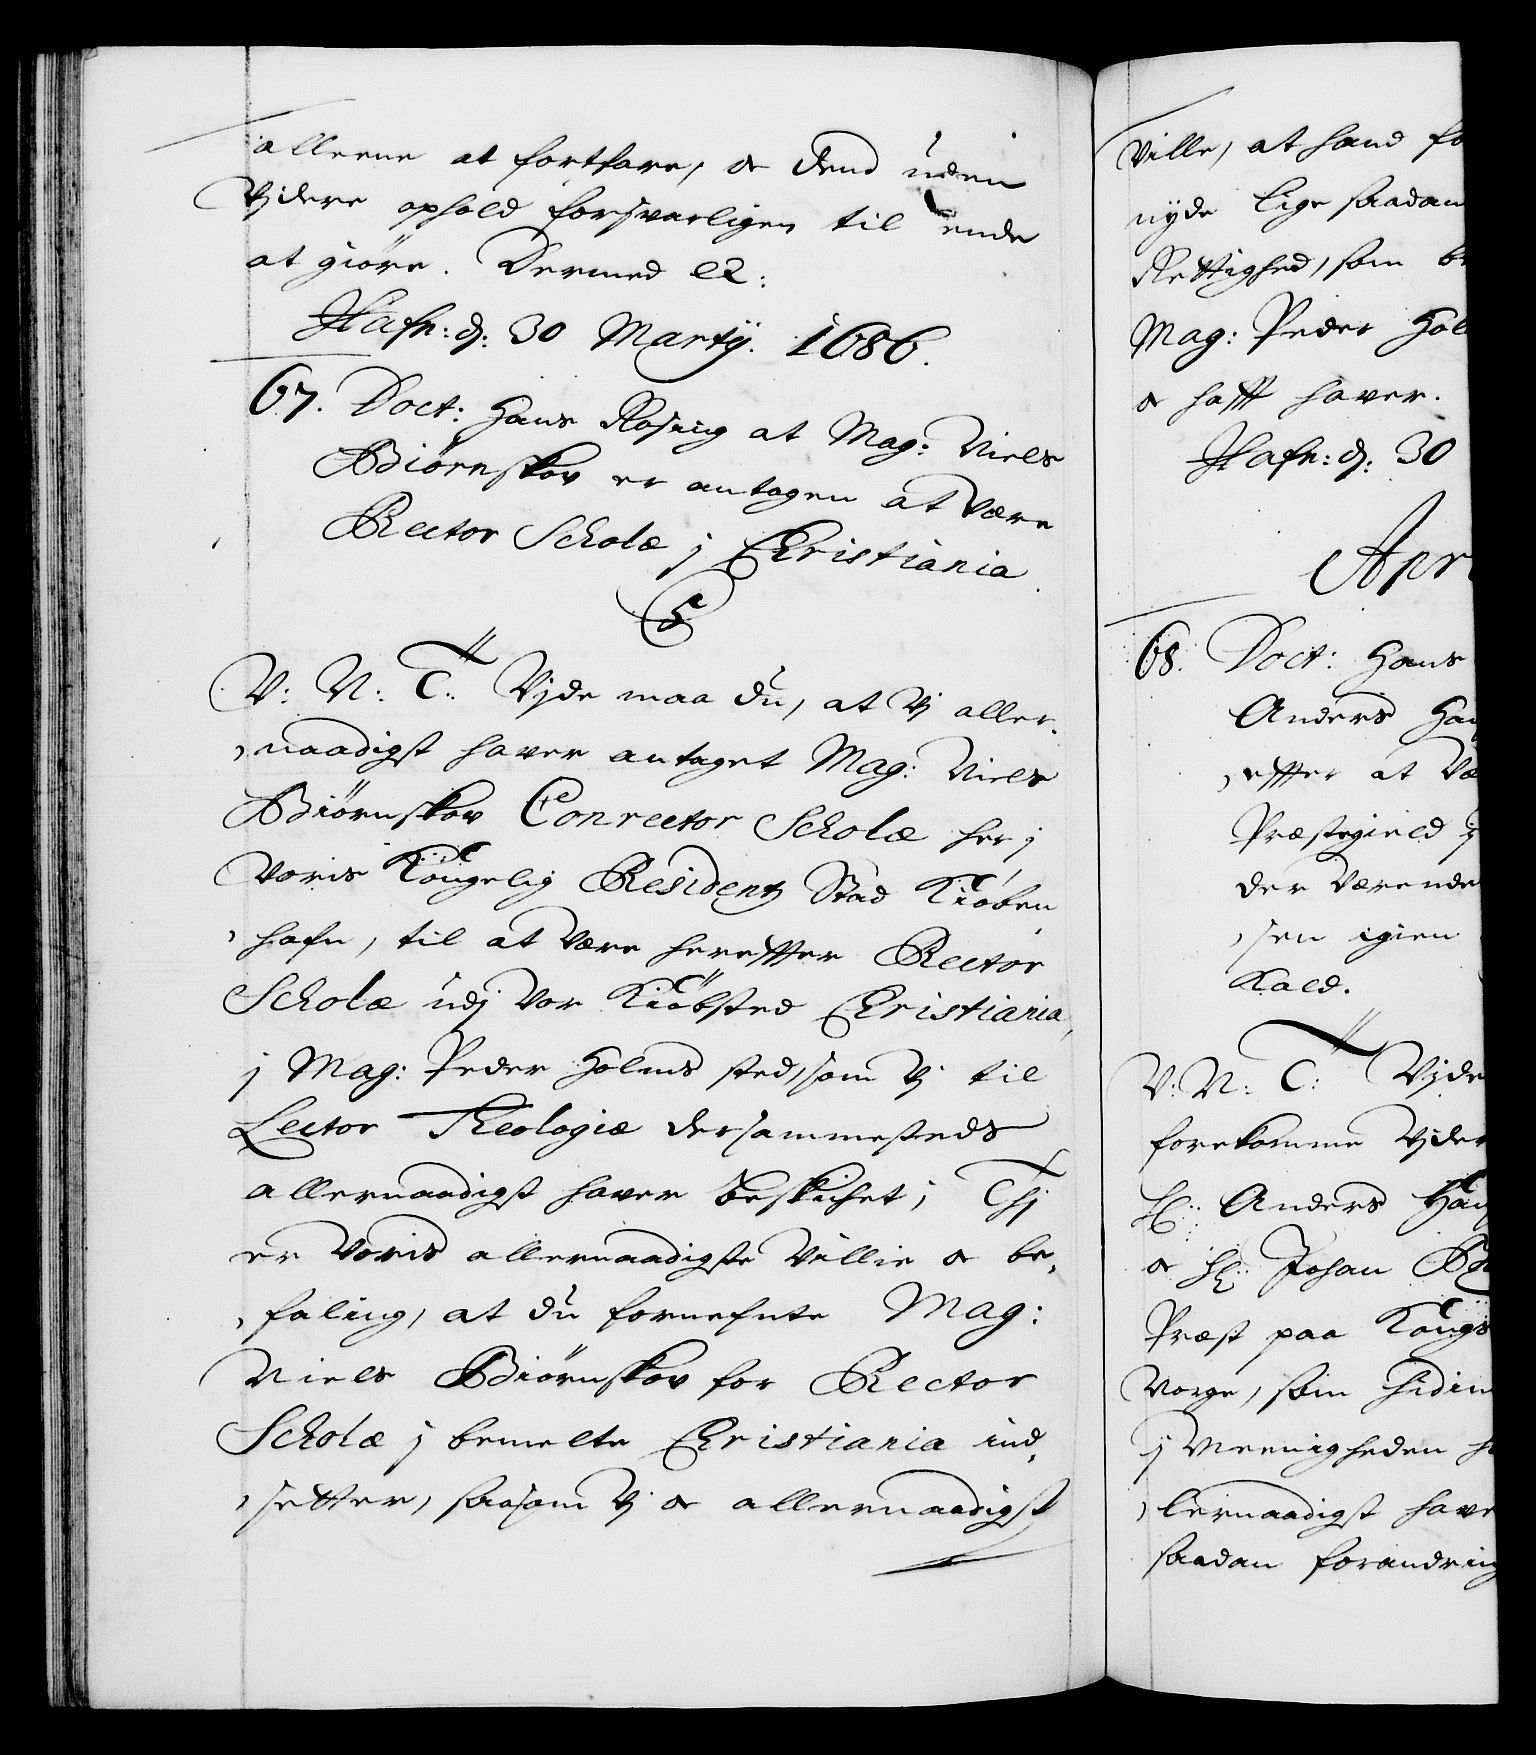 alleene at fortfare, oc dend uden
Vjdere ophold forsvarligen til ende
at giöre. Dermed etc:
Hafn: d: 30 Martij. 1686.
67. Doct: Hans Rosing at Mag: Niels
Biörnskov er antagen at være
Rector Scholæ j Christiania.
C5
V: N: T: Vjde maa du, at Vj aller-
naadigst haver antaget Mag: Niels
Biörnskov Conrector Scholæ her j
Voris Kongelig Residentz Stad Kiöben-
hafn, til at være hereffter Rector
Scholæ udj Vor Kiöbsted Christiania,
j Mag: Peder Holms sted, som Vj til
Lector Theologiæ dersammesteds
allernaadigst haver beskichet; Thj
er Voris allernaadigste Villie oc be-
faling, at du fornefnte Mag:
Niels Biörnskov for Rector
Scholæ j bemelte Christiania ind-
setter, saasom Vj oc allernaadigst
Ville, at hand
nyde lige saadan
Rettighed, som
Mag: Peder Hol
oc hafft haver.
Hafn: d: 30
Apr
68. Doct: Hans
Anders
effter at Væ
Præstegield j
der værende
sen igien
Kald.
V: N: T: Vjde
forekomme Vjder
Hr: Anders
oc Hr: Johan
Præst paa Kongs
Norge, som hidin
j Meenigheden
lernaadigst have
saadan forandring